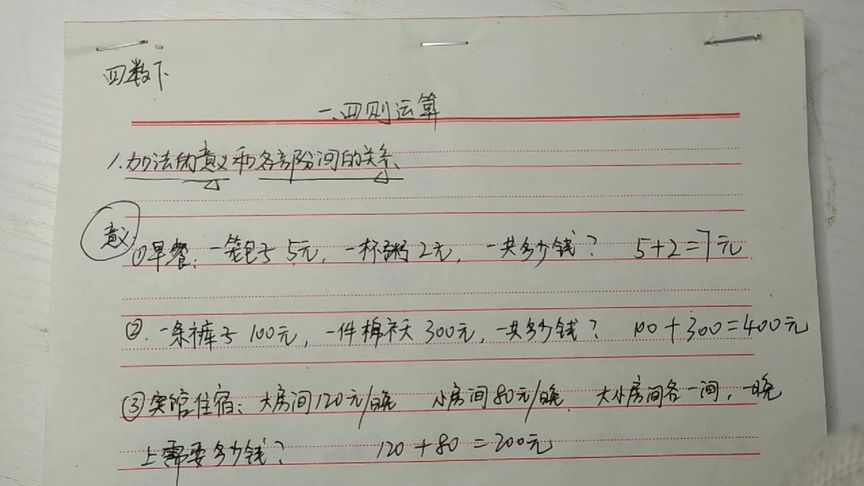 四数下
一、四则运算
1.加法的意义和各部份间的关系、
意义
①早餐:一笼包子5元,一杯粥2元,一共多少钱? 5+2=7元
②.一条裤子100元,一件棉袄300元,一共多少钱? 100+300=400元
③宾馆住宿:大房间120元/晚 小房间80元/晚. 大小房间各一间,一晚
上需要多少钱? 120+80=200元